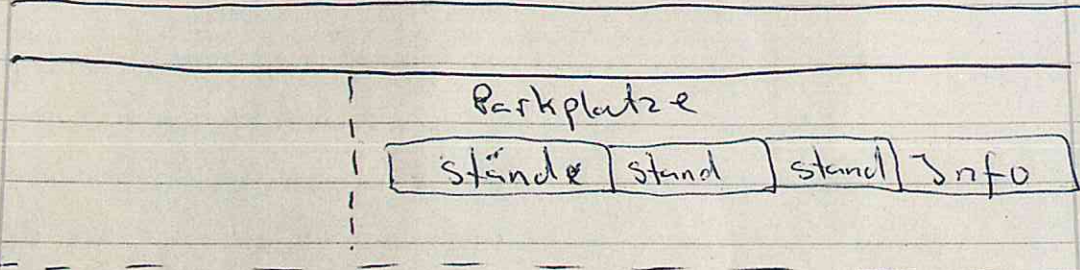 Parkplatze
stände stand stand Info